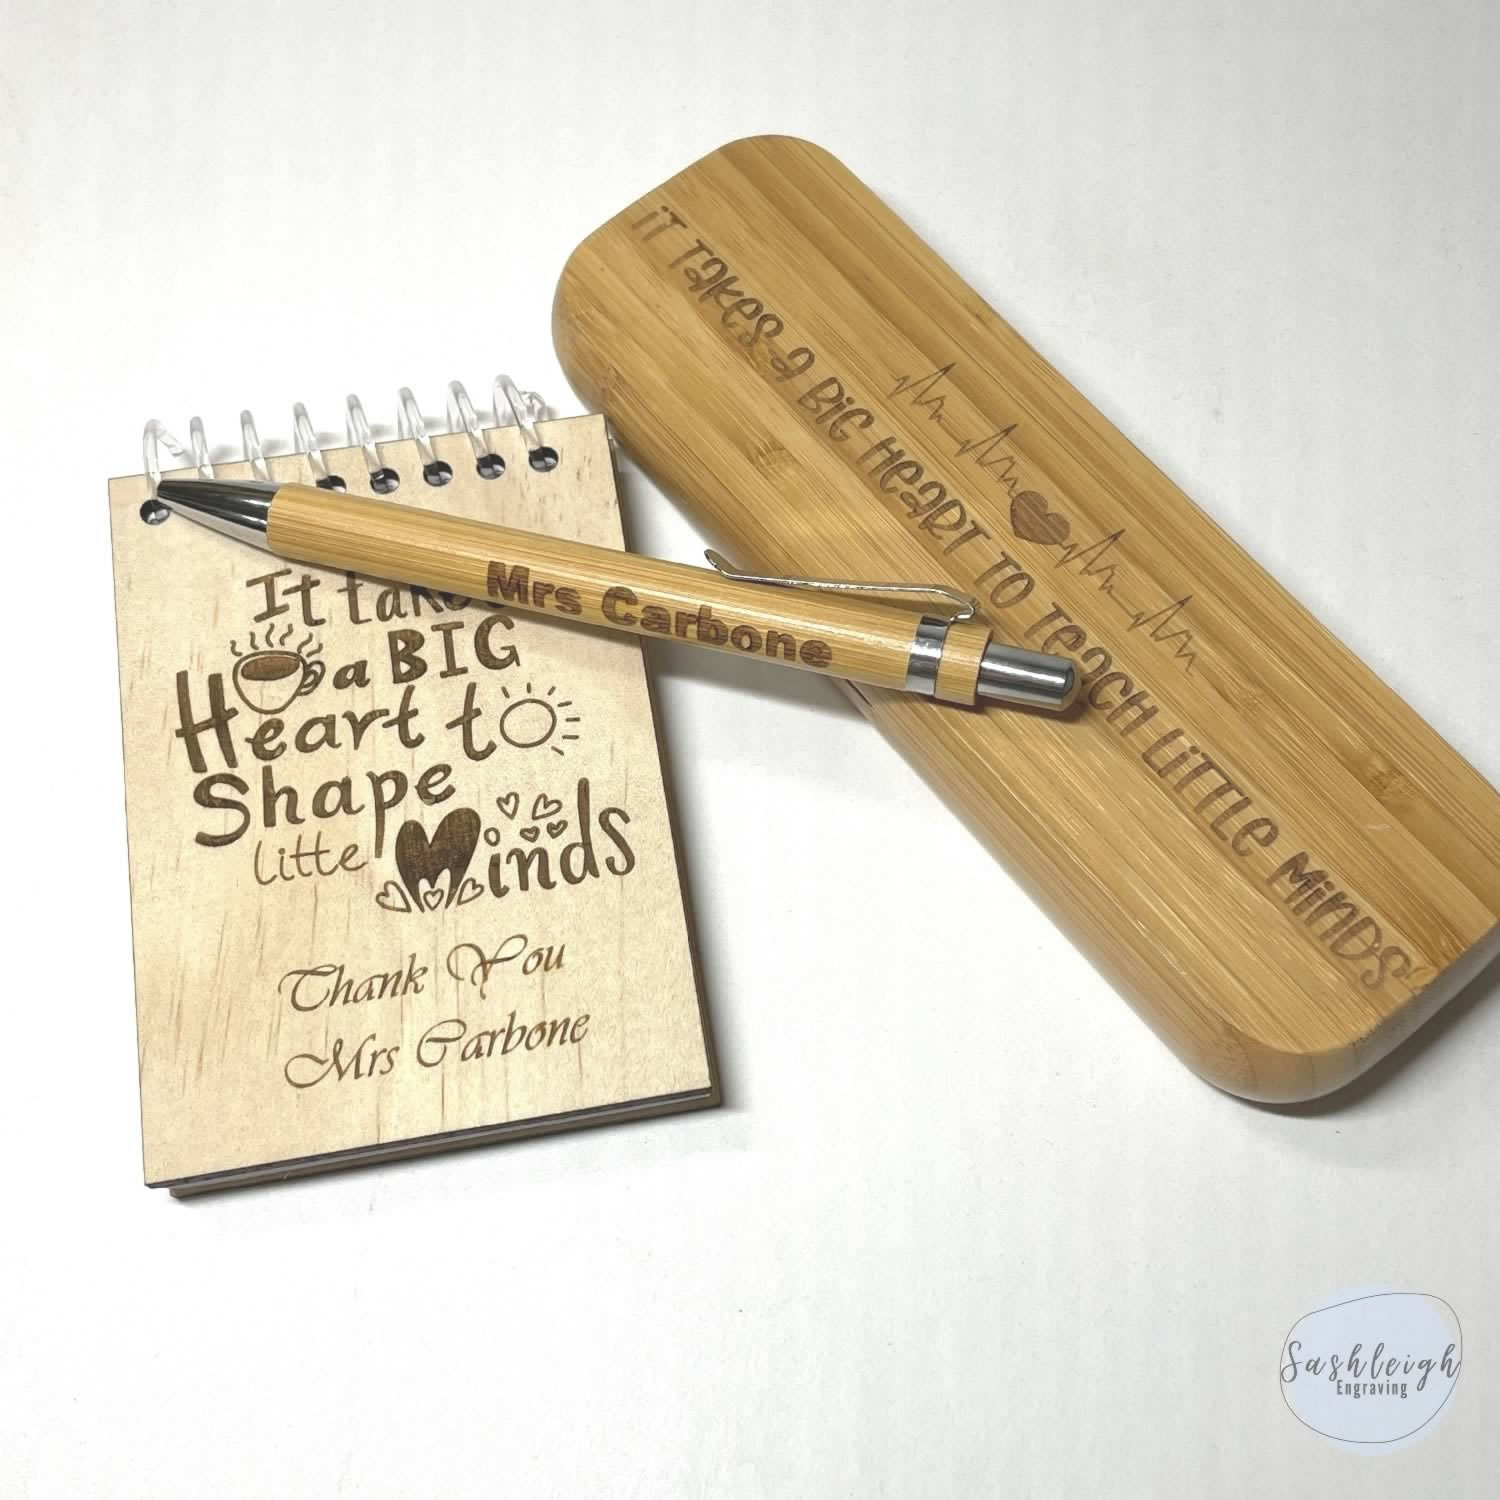 It takes
a BIG
Heart to
Shape
litte Minds
Thank You
Mrs Carbone
Mrs Carbone
iT TaKeS a BiG HeaRT TO TeaCH LiTTLe MiNDS
Sashleigh
Engraving